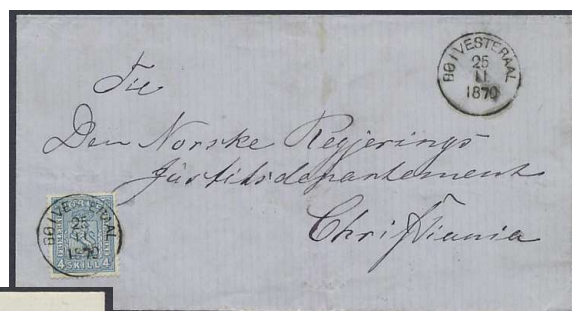 BØ I VESTERAAL
25
11
1870
Til
Den Norske Regjerings
Justitsdepartement
Christiania
BØ I VESTERAAL
25
11
1870
4 SKILL 4